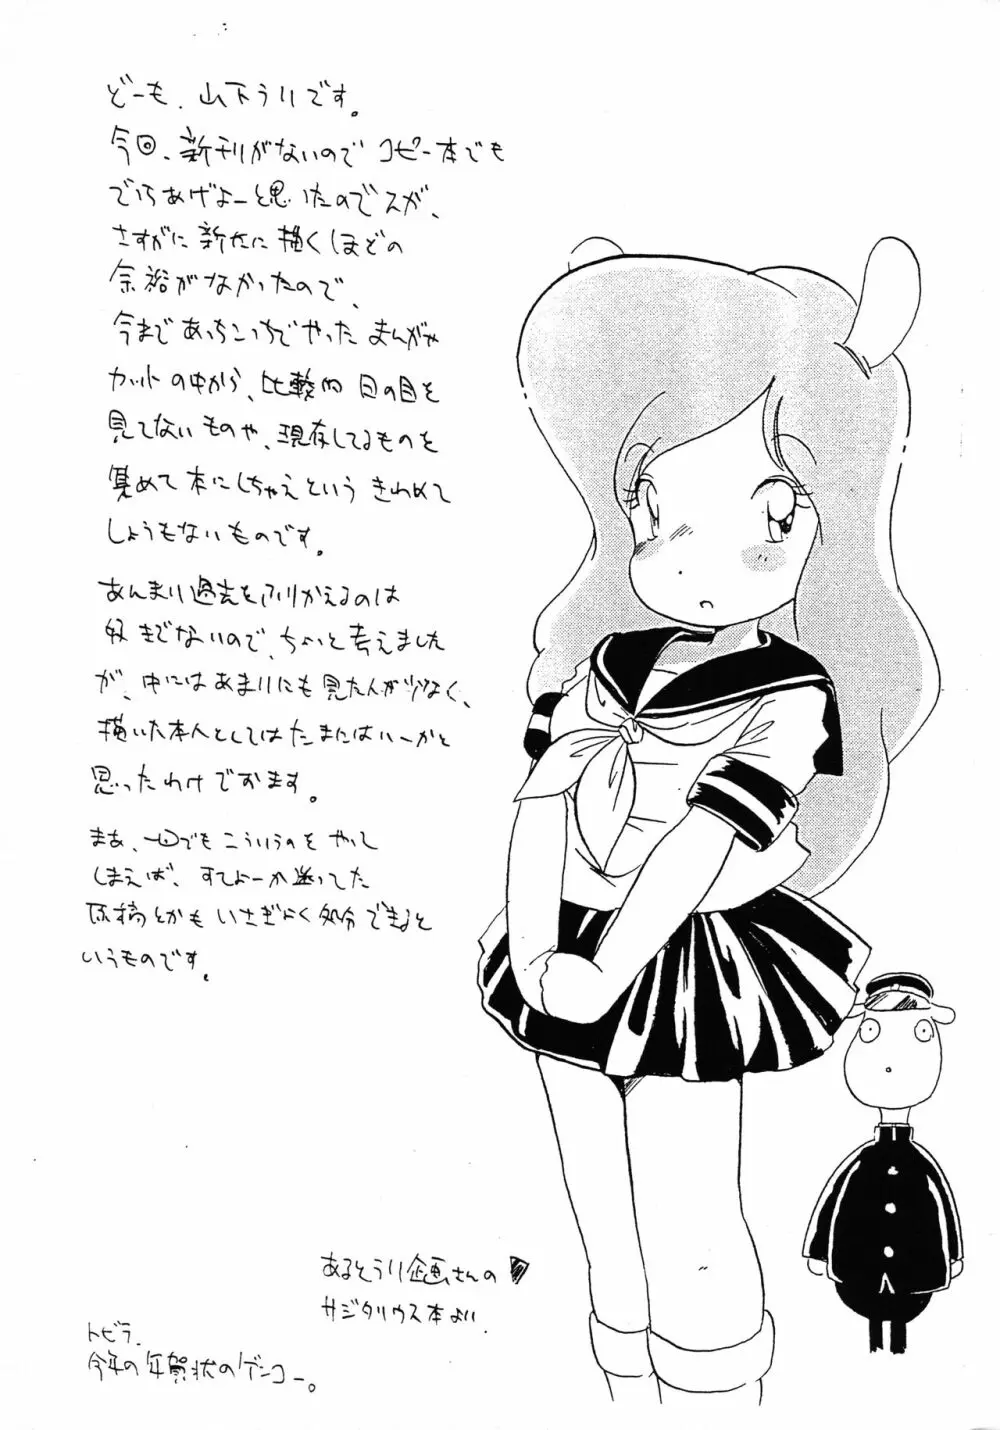 どーも、山下うりです。
今回、新刊がないので コピー本でも
でっちあげよーと思ったのでスが、
さすがに 新たに 描くほどの
余裕がなかったので、
今まであっちこっちでやった まんがや
カットの中から、比較的 日の目を
見てないものや、現存してるものを
集めて 本にしちゃえという きわめて
しょうもないものです。
あんまり過去をふりかえるのは
好きでないので、ちょいと考えました
が、中にはあまりにも見た人が少なく、
描いた本人としてはたまにはいーかと
思ったわけでおます。
まあ、一回でもこういうのを やって
しまえば、すてよーか迷ってた
原稿とかも いさぎよく処分できると
いうものです。
あるとうり企画さんの
サジタリウス本より.
トビラ.
今年の年賀状のゲンコー。